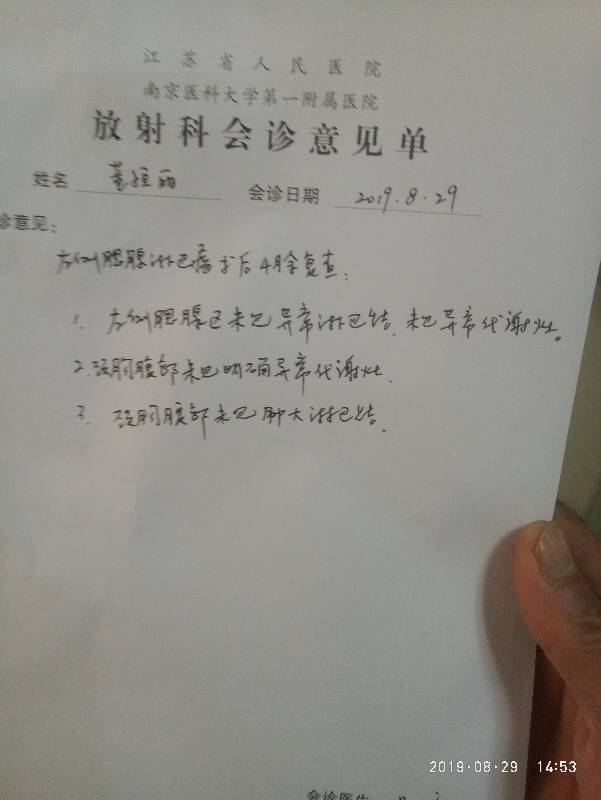 江苏省人民医院
南京医科大学第一附属医院
放射科会诊意见单
姓名 会诊日期 2019.8.29
诊意见:
左侧腮腺淋巴瘤术后4月余复查:
1. 左侧腮腺区未见异常淋巴结、未见异常代谢灶。
2. 颈胸腹部未见明确异常代谢灶.
3. 颈胸腹部未见肿大淋巴结.
会诊医生
2019-08-29 14:53